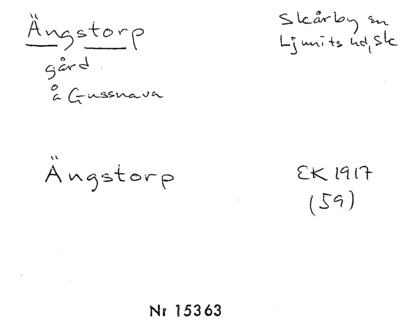 Ängstorp
gård
å Gussnava
Skårby sn
Ljunits hd, Sk
Ängstorp
EK 1917
(59)
Nr 15363